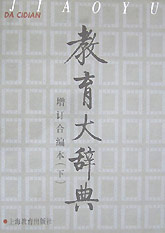 JIAOYU
DA CIDIAN
教育大辞典
增订合编本(下)
上海教育出版社